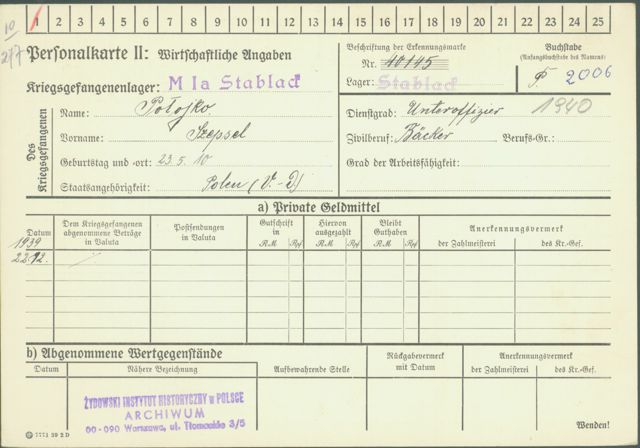 1 2 3 4 5 6 7 8 9 10 11 12 13 14 15 16 17 18 19 20 21 22 23 24 25
10
277
Personalkarte II: Wirtschaftliche Angaben
Beschriftung der Erkennungsmarke
Nr. 10145
Buchstabe
(Anfangsbuchstabe des Namens)
2006
Kriegsgefangenenlager: M Ia Stablack
Lager: Stablack
Des Kriegsgefangenen
Name:
Vorname: Szepsel
Geburtstag und -ort: 23.5.10
Staatsangehörigkeit: Polen (V.-D)
Dienstgrad: Unteroffizier 1940
Zivilberuf: Bäcker Berufs-Gr.:
Grad der Arbeitsfähigkeit:
a) Private Geldmittel
Datum
Dem Kriegsgefangenen abgenommene Beträge in Valuta
Postsendungen in Valuta
Gutschrift in
RM Rpf
Hiervon ausgezahlt
RM Rpf
Bleibt Guthaben
RM Rpf
Anerkennungsvermerk
der Zahlmeisterei des Kr.-Gef.
1939
22.12.
b) Abgenommene Wertgegenstände
Datum
Nähere Bezeichnung
Aufbewahrende Stelle
Rückgabevermerk mit Datum
Anerkennungsvermerk
der Zahlmeisterei des Kr.-Gef.
ŻYDOWSKI INSTYTUT HISTORYCZNY w POLSCE
ARCHIWUM
00-090 Warszawa, ul. Tłomackie 3/5
7771 39 2 D
Wenden!